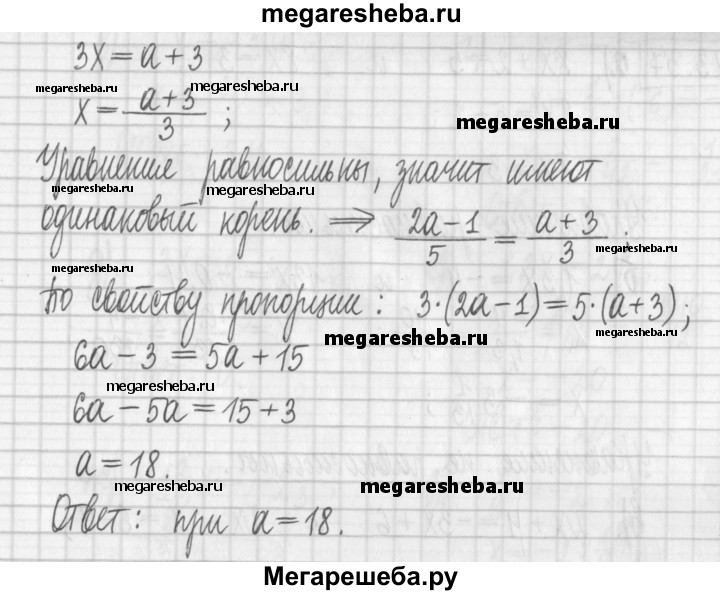 megaresheba.ru
3x = a + 3
megaresheba.ru megaresheba.ru
x = (a + 3)/3 ;
megaresheba.ru
Уравнение равносильны, значит имеют
megaresheba.ru megaresheba.ru
одинаковый корень. ⟹ (2a − 1)/5 = (a + 3)/3 .
megaresheba.ru
megaresheba.ru
По свойству пропорции : 3·(2a−1) = 5·(a+3) ;
megaresheba.ru
6a − 3 = 5a + 15
megaresheba.ru
6a − 5a = 15 + 3
a = 18.
megaresheba.ru megaresheba.ru
Ответ: при a = 18.
Мегарешеба.ру